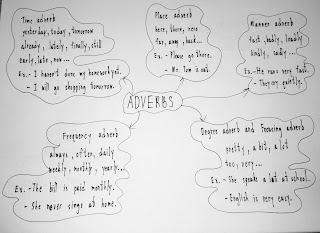 Time adverb
yesterday, today, tomorrow
already, lately, finally, still
early, late, now...
Ex. - I haven't done my homework yet.
- I will go shopping tomorrow.
Place adverb
here, there, near
far, away, back...
Ex. - Please go there.
- Mr. Tom is out.
Manner adverb
fast, badly, loudly
kindly, easily...
Ex. - He runs very fast.
- They cry quietly.
ADVERBS
Frequency adverb
always, often, daily
weekly, monthly, yearly...
Ex. - The bill is paid monthly.
- She never sings at home.
Degree adverb and Focusing adverb
pretty, a bit, a lot
too, very...
Ex. - She speaks a lot at school.
- English is very easy.